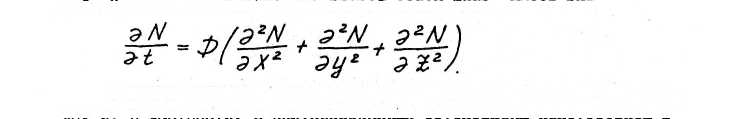 ∂N/∂t = D(∂²N/∂x² + ∂²N/∂y² + ∂²N/∂z²).